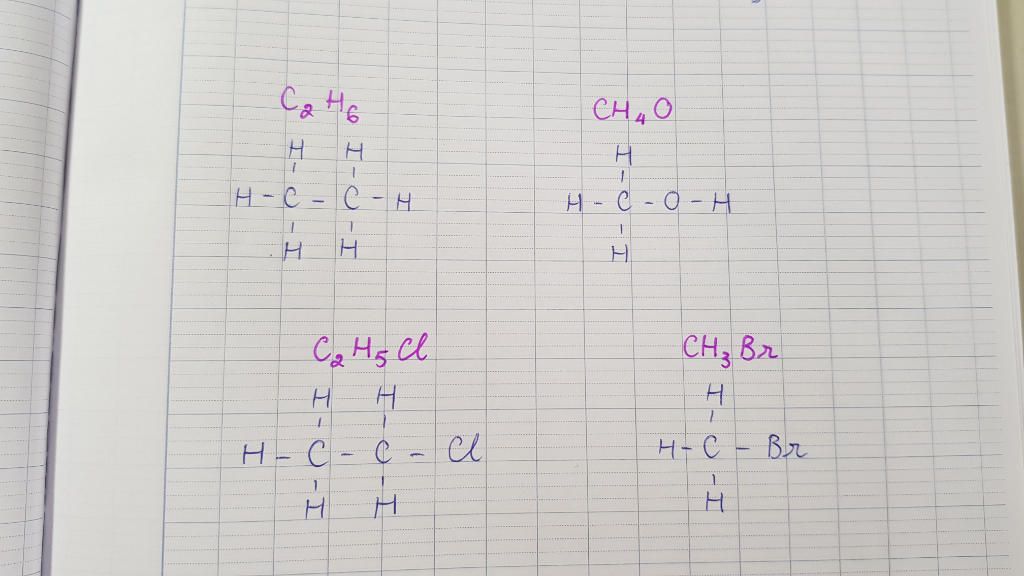 C₂H₆
H H
H - C - C - H
H H
CH₄O
H
H - C - O - H
H
C₂H₅Cl
H H
H - C - C - Cl
H H
CH₃Br
H
H - C - Br
H